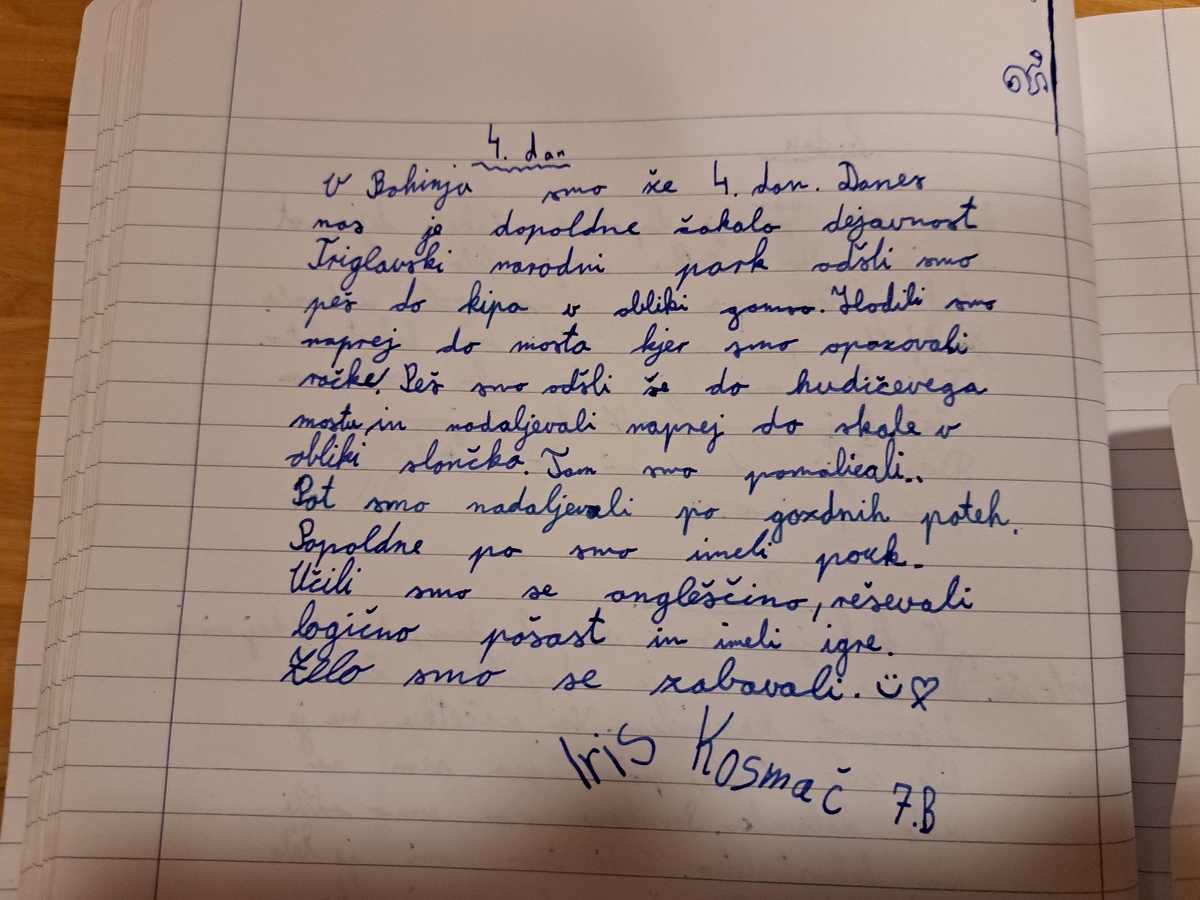 4. dan
V Bohinju smo že 4. dan. Danes
nas je dopoldne čakala dejavnost
Triglavski narodni park odšli smo
peš do kipa v obliki gamsa. Hodili smo
naprej do mosta kjer smo opazovali
račke! Peš smo odšli še do hudičevega
mostu, in nadaljevali naprej do skale v
obliki slončka. Tam smo pomalicali..
Pot smo nadaljevali po gozdnih poteh.
Popoldne pa smo imeli pouk.
Učili smo se angleščino, reševali
logično pošast in imeli igre.
Zelo smo se zabavali.
Iris Kosmač 7.B